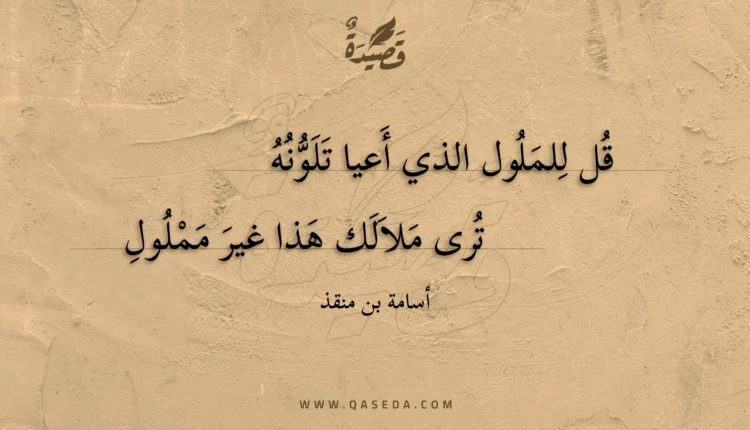 قَصِيْدَةٌ
قُل لِلمَلُول الذي أَعيا تَلَوُّنُهُ
تُرى مَلاَلَك هَذا غيرَ مَمْلُولِ
أسامة بن منقذ
WWW.QASEDA.COM